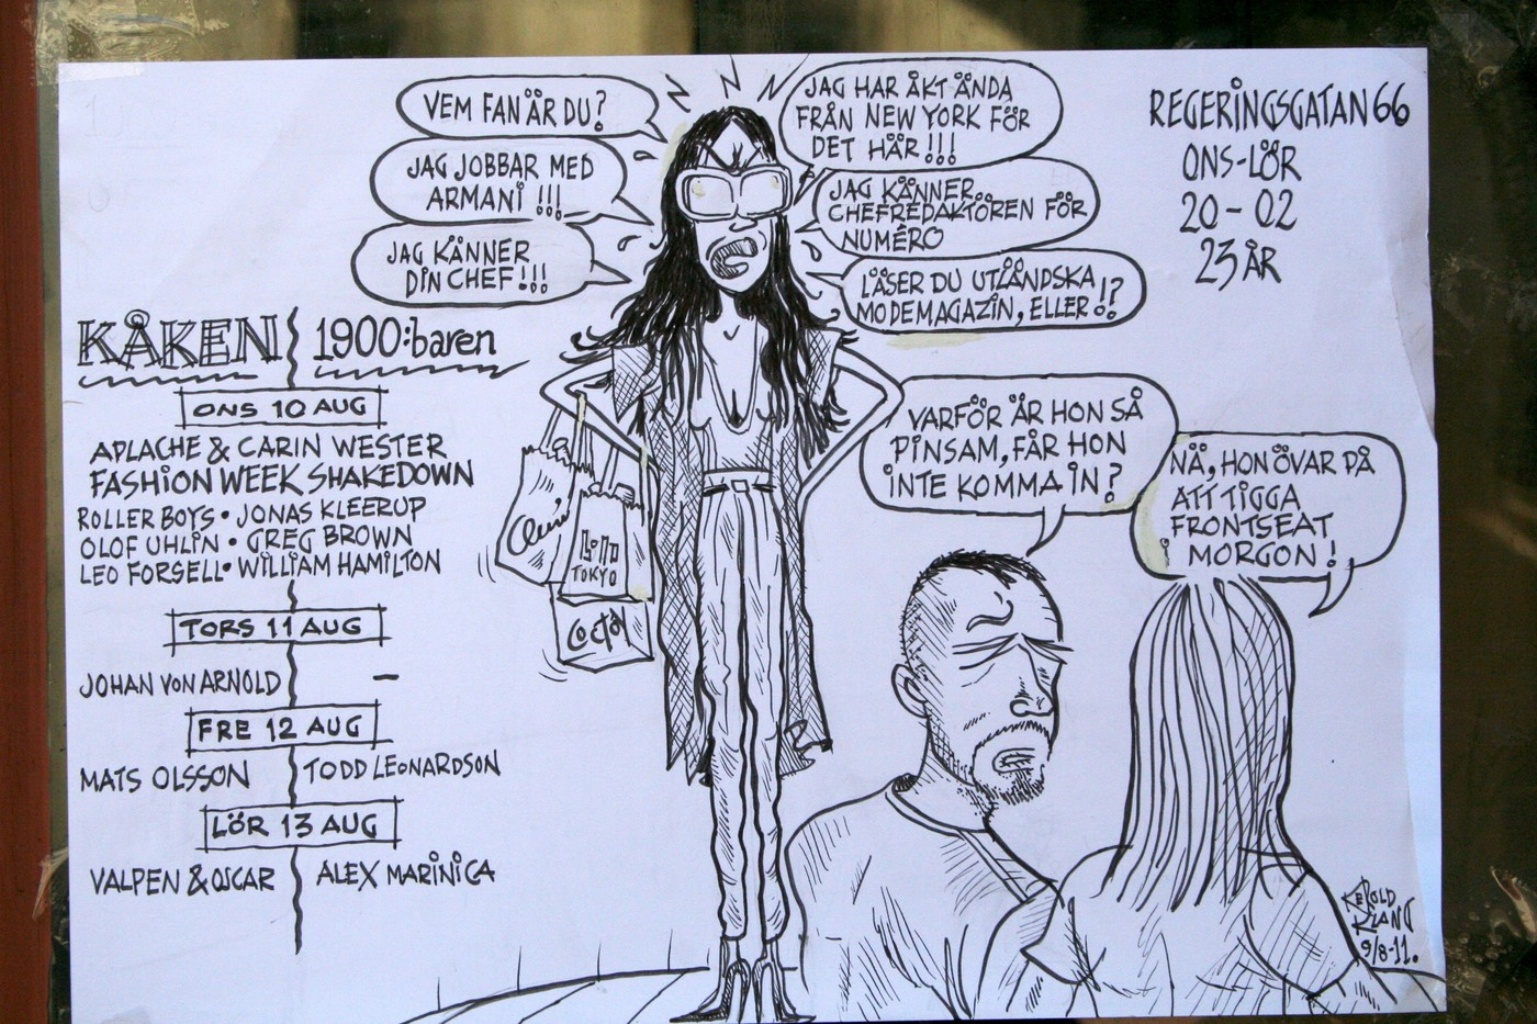 VEM FAN ÄR DU?
JAG JOBBAR MED
ARMANI !!!
JAG KÄNNER
DIN CHEF!!!
JAG HAR ÅKT ÄNDA
FRÅN NEW YORK FÖR
DET HÄR!!!
JAG KÄNNER
CHEFREDAKTÖREN FÖR
NUMÉRO
LÄSER DU UTLÄNDSKA
MODEMAGAZIN, ELLER!?
REGERINGSGATAN 66
ONS-LÖR
20-02
23 ÅR
KÅKEN
1900:baren
ONS 10 AUG
APLACHE & CARIN WESTER
FASHION WEEK SHAKEDOWN
ROLLER BOYS • JONAS KLEERUP
OLOF UHLIN • GREG BROWN
LEO FORSELL • WILLIAM HAMILTON
TORS 11 AUG
JOHAN VON ARNOLD –
FRE 12 AUG
MATS OLSSON
TODD LEONARDSON
LÖR 13 AUG
VALPEN & OSCAR
ALEX MARINICA
TOKYO
VARFÖR ÄR HON SÅ
PINSAM, FÅR HON
INTE KOMMA IN?
NÄ, HON ÖVAR PÅ
ATT TIGGA
FRONTSEAT
I MORGON!
KLANG
9/8-11.